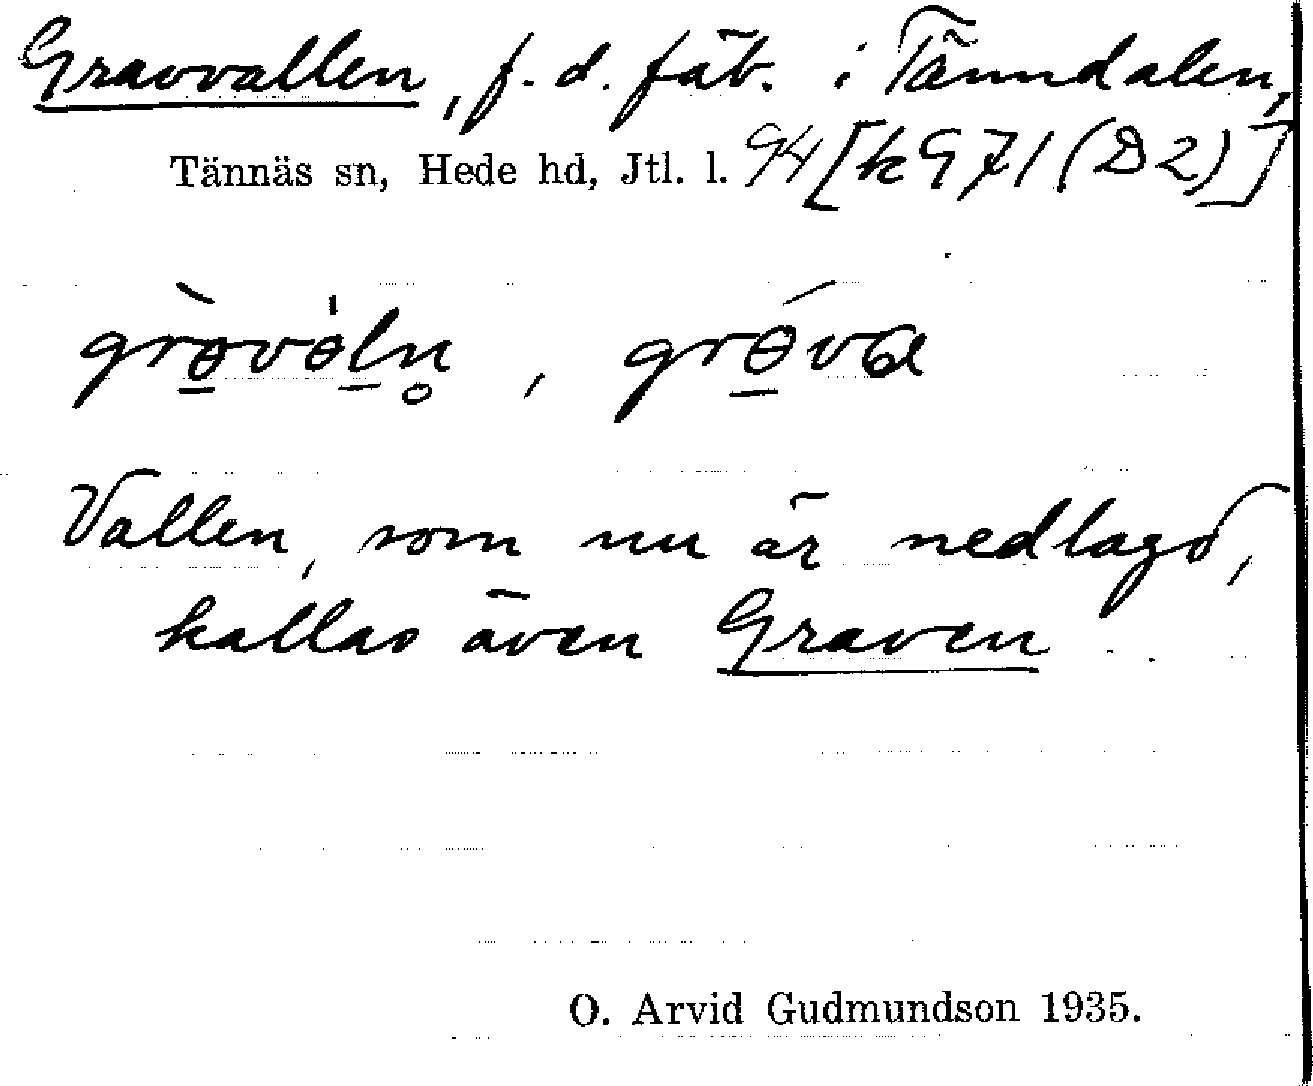 Gravvallen, f. d. fäb. i Tänndalen,
Tännäs sn, Hede hd, Jtl. l. 94 [k 971 (D2)]
grə̀və́ln̥, grə́va
Vallen, som nu är nedlagd,
kallas även Graven
O. Arvid Gudmundson 1935.